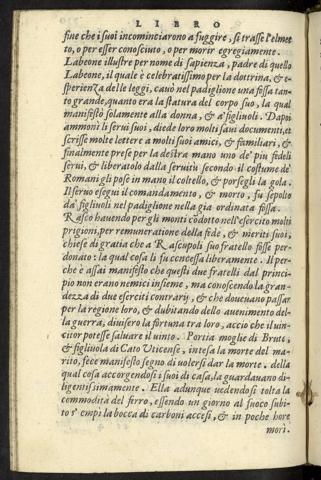 LIBRO
fine che i suoi incominciarono a fuggire, si trasse l'elmet
to, o per esser conosciuto, o per morir egregiamente.
Labeone illustre per nome di sapienza, padre di quello
Labeone, il quale è celebratissimo per la dottrina, & e-
sperienza delle leggi, cavò nel padiglione una fossa tan-
to grande, quanto era la statura del corpo suo, la qual
manifestò solamente alla donna, & a' figliuoli. Dapoi
ammonì li servi suoi, diede loro molti savi documenti, et
scrisse molte lettere a molti suoi amici, & familiari, &
finalmente prese per la destra mano uno de' piu fedeli
servi, & liberatolo dalla servitù secondo il costume de'
Romani gli pose in mano il coltello, & porsegli la gola.
Il servo eseguì il comandamento, & morto, fu sepolto
da' figliuoli nel padiglione nella già ordinata fossa.
Rasco havendo per gli monti cōdotto nell'esercito molti
prigioni, per remuneratione della fede, & meriti suoi,
chiese di gratia che a Rascupoli suo fratello fosse per-
donato: la qual cosa li fu concessa liberamente. Il per-
che è assai manifesto che questi due fratelli dal princi-
pio non erano nemici insieme, ma conoscendo la gran-
dezza di due eserciti contrarij, & che dovevano passar
per la regione loro, & dubitando dello avenimento del-
la guerra, divisero la fortuna tra loro, accio che il vin-
citor potesse salvare il vinto. Portia moglie di Bruto,
& figlivola di Cato Uticense, intesa la morte del ma-
rito, fece manifesto segno di volersi dar la morte. della
qual cosa accorgendosi i suoi di casa, la guardavano di-
ligentissimamente. Ella adunque vedendosi tolta la
commodità del ferro, essendo un giorno al fuoco subi-
to s' empì la bocca di carboni accesi, & in poche hore
morì.